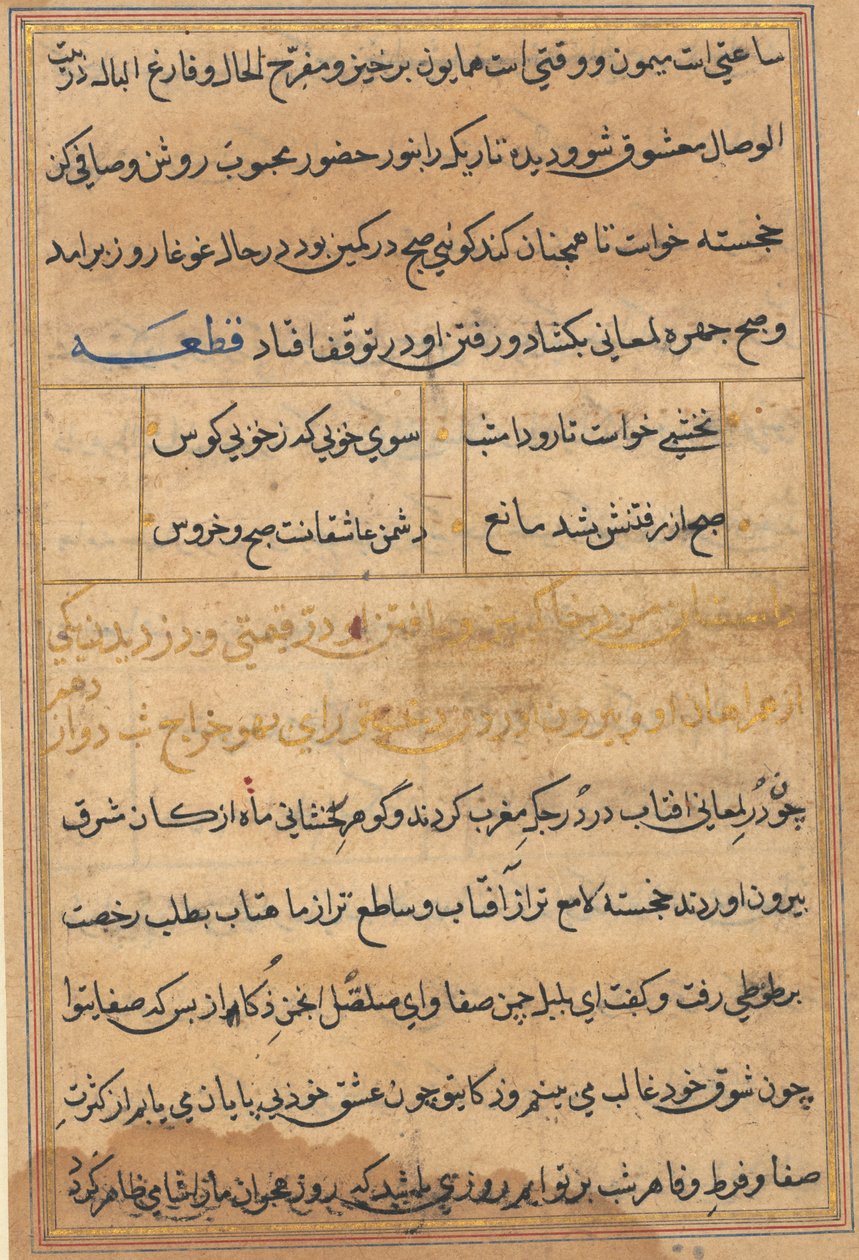 ساعتي است ميمون و وقتي است همايون برخيز و مفرّح الحال و فارغ البال در بيت
الوصال معشوق شو و ديده تاريك را بنور حضور محبوب روشن و صافي كن
خجسته خواست تا همچنان كند كوئي صبح در كمين بود در حال غوغا روز برامد
و صبح چهره لمعاني بكشاد و رفتن او در توقّف افتاد قطعه
نخشبي خواست تا رود امشب سوي خوبي كه ز خوبي كوس
صبح از رفتنش بشد مانع دشمن عاشقانست صبح و خروس
داستان در خاك و يافتن او درّ قيمتي و دزديدن يكي
از همراهان او و بيرون اوردن راي بهوخراج شب دوازدهم
چون دُرِ لمعاني افتاب در دُرجكِ مغرب كردند و گوهرِ رخشاني ماه از كان شرق
بيرون اوردند خجسته لامع تر از آفتاب و ساطع تر از ماهتاب بطلب رخصت
بر طوطي رفت و كفت اي بلبل چمن صفا و اي صلصل انجمنِ ذُكا از بس كه صفا يتو ا
چون شوق خود غالب مي بينم و زكايتو چون عشق خود بي پايان مي يابم از كثرتِ
صفا و فرطِ وفا هر شب بر تو ايم روزي باشد كه روز هجران ما را شامي ظاهر كردد